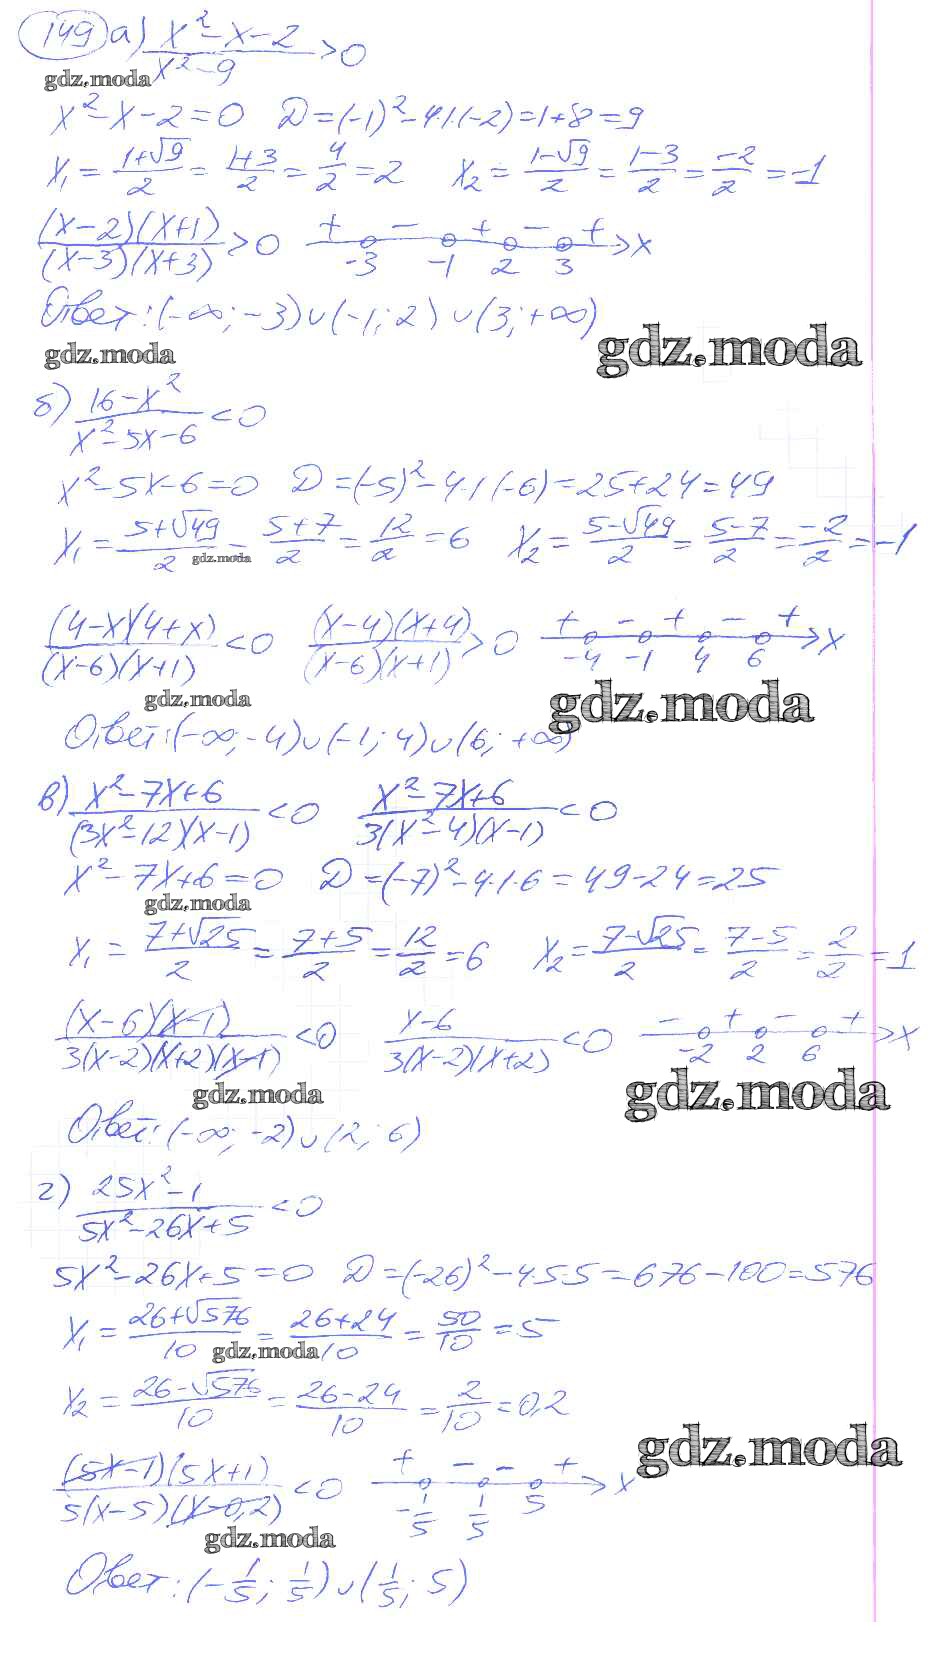 149 а) (x²-x-2)/(x²-9) > 0
gdz.moda
x²-x-2=0 D=(-1)²-4·1·(-2)=1+8=9
x₁ = (1+√9)/2 = (1+3)/2 = 4/2 = 2 x₂ = (1-√9)/2 = (1-3)/2 = -2/2 = -1
((x-2)(x+1))/((x-3)(x+3)) > 0 + - + - + -3 -1 2 3 x
Ответ: (-∞; -3)∪(-1; 2)∪(3; +∞)
gdz.moda gdz.moda
б) (16-x²)/(x²-5x-6) < 0
x²-5x-6=0 D=(-5)²-4·1·(-6)=25+24=49
x₁ = (5+√49)/2 = (5+7)/2 = 12/2 = 6 x₂ = (5-√49)/2 = (5-7)/2 = -2/2 = -1
gdz.moda
((4-x)(4+x))/((x-6)(x+1)) < 0 ((x-4)(x+4))/((x-6)(x+1)) > 0 + - + - + -4 -1 4 6 x
gdz.moda gdz.moda
Ответ: (-∞; -4)∪(-1; 4)∪(6; +∞)
в) (x²-7x+6)/((3x²-12)(x-1)) < 0 (x²-7x+6)/(3(x²-4)(x-1)) < 0
x²-7x+6=0 D=(-7)²-4·1·6=49-24=25
gdz.moda
x₁ = (7+√25)/2 = (7+5)/2 = 12/2 = 6 x₂ = (7-√25)/2 = (7-5)/2 = 2/2 = 1
((x-6)(x-1))/(3(x-2)(x+2)(x-1)) < 0 (x-6)/(3(x-2)(x+2)) < 0 - + - + -2 2 6 x
gdz.moda gdz.moda
Ответ: (-∞; -2)∪(2; 6)
г) (25x²-1)/(5x²-26x+5) < 0
5x²-26x+5=0 D=(-26)²-4·5·5=676-100=576
x₁ = (26+√576)/10 = (26+24)/10 = 50/10 = 5
gdz.moda
x₂ = (26-√576)/10 = (26-24)/10 = 2/10 = 0,2
gdz.moda
((5x-1)(5x+1))/(5(x-5)(x-0,2)) < 0 + - - + -1/5 1/5 5 x
gdz.moda
Ответ: (-1/5; 1/5)∪(1/5; 5)